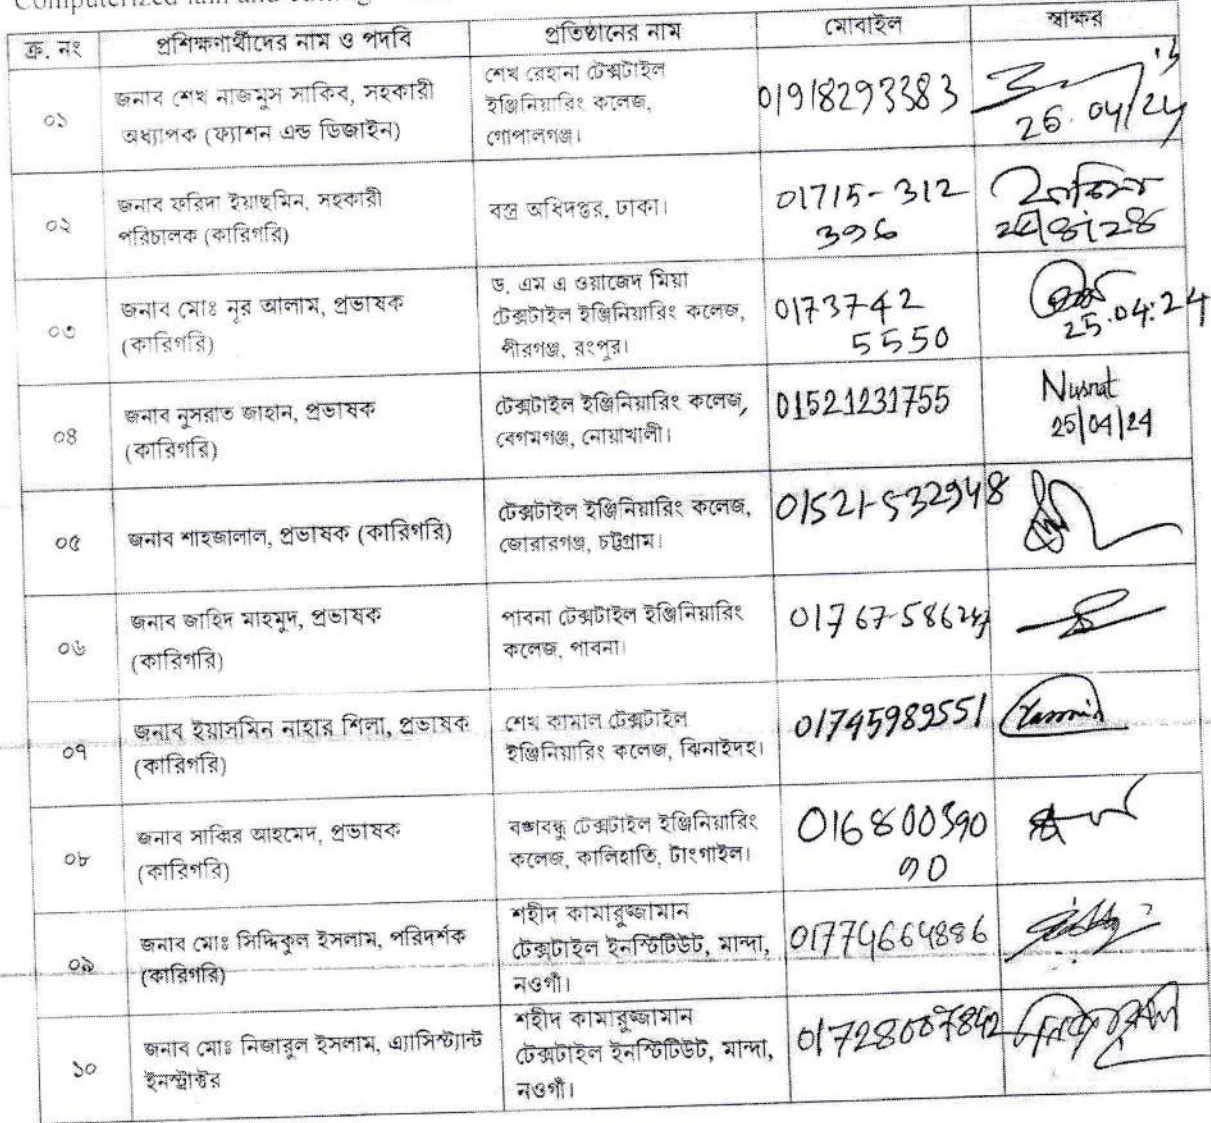 Computerized
ক্র. নং প্রশিক্ষণার্থীদের নাম ও পদবি প্রতিষ্ঠানের নাম মোবাইল স্বাক্ষর
০১ জনাব শেখ নাজমুস সাকিব, সহকারী
অধ্যাপক (ফ্যাশন এন্ড ডিজাইন)
শেখ রেহানা টেক্সটাইল
ইঞ্জিনিয়ারিং কলেজ,
গোপালগঞ্জ।
01918293383
০২ জনাব ফরিদা ইয়াছমিন, সহকারী
পরিচালক (কারিগরি)
বস্ত্র অধিদপ্তর, ঢাকা।
01715-312
396
০৩ জনাব মোঃ নূর আলাম, প্রভাষক
(কারিগরি)
ড. এম এ ওয়াজেদ মিয়া
টেক্সটাইল ইঞ্জিনিয়ারিং কলেজ,
পীরগঞ্জ, রংপুর।
0173742
5550
25.04.24
০৪ জনাব নুসরাত জাহান, প্রভাষক
(কারিগরি)
টেক্সটাইল ইঞ্জিনিয়ারিং কলেজ,
বেগমগঞ্জ, নোয়াখালী।
01521231755
Nusrat
25/04/24
০৫ জনাব শাহজালাল, প্রভাষক (কারিগরি)
টেক্সটাইল ইঞ্জিনিয়ারিং কলেজ,
জোরারগঞ্জ, চট্টগ্রাম।
০৬ জনাব জাহিদ মাহমুদ, প্রভাষক
(কারিগরি)
পাবনা টেক্সটাইল ইঞ্জিনিয়ারিং
কলেজ, পাবনা।
০৭ জনাব ইয়াসমিন নাহার শিলা, প্রভাষক
(কারিগরি)
শেখ কামাল টেক্সটাইল
ইঞ্জিনিয়ারিং কলেজ, ঝিনাইদহ।
01745989551
০৮ জনাব সাব্বির আহমেদ, প্রভাষক
(কারিগরি)
বঙ্গবন্ধু টেক্সটাইল ইঞ্জিনিয়ারিং
কলেজ, কালিহাতি, টাংগাইল।
০৯ জনাব মোঃ সিদ্দিকুল ইসলাম, পরিদর্শক
(কারিগরি)
শহীদ কামারুজ্জামান
টেক্সটাইল ইনস্টিটিউট, মান্দা,
নওগাঁ।
১০ জনাব মোঃ নিজারুল ইসলাম, এ্যাসিস্ট্যান্ট
ইনস্ট্রাক্টর
শহীদ কামারুজ্জামান
টেক্সটাইল ইনস্টিটিউট, মান্দা,
নওগাঁ।
01728007842